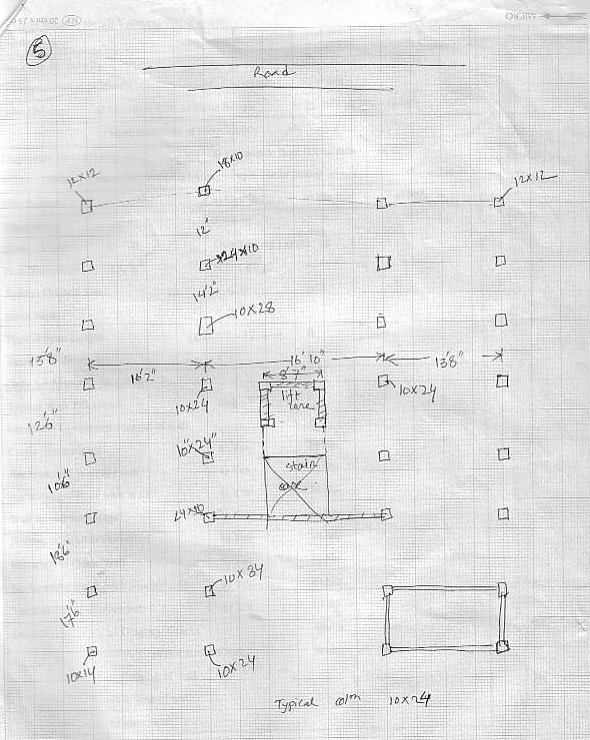 5
Road
12×12
18×10
12×12
12'
24×10
14'2"
10×28
15'8"
16'2"
16' 10"
13'8"
8'7"
lift
core
10×24
10×24
12'6"
10"×24"
stair
case
10'6"
24×10
18'6"
10×34
17'6"
10×14
10×24
Typical colm 10×24